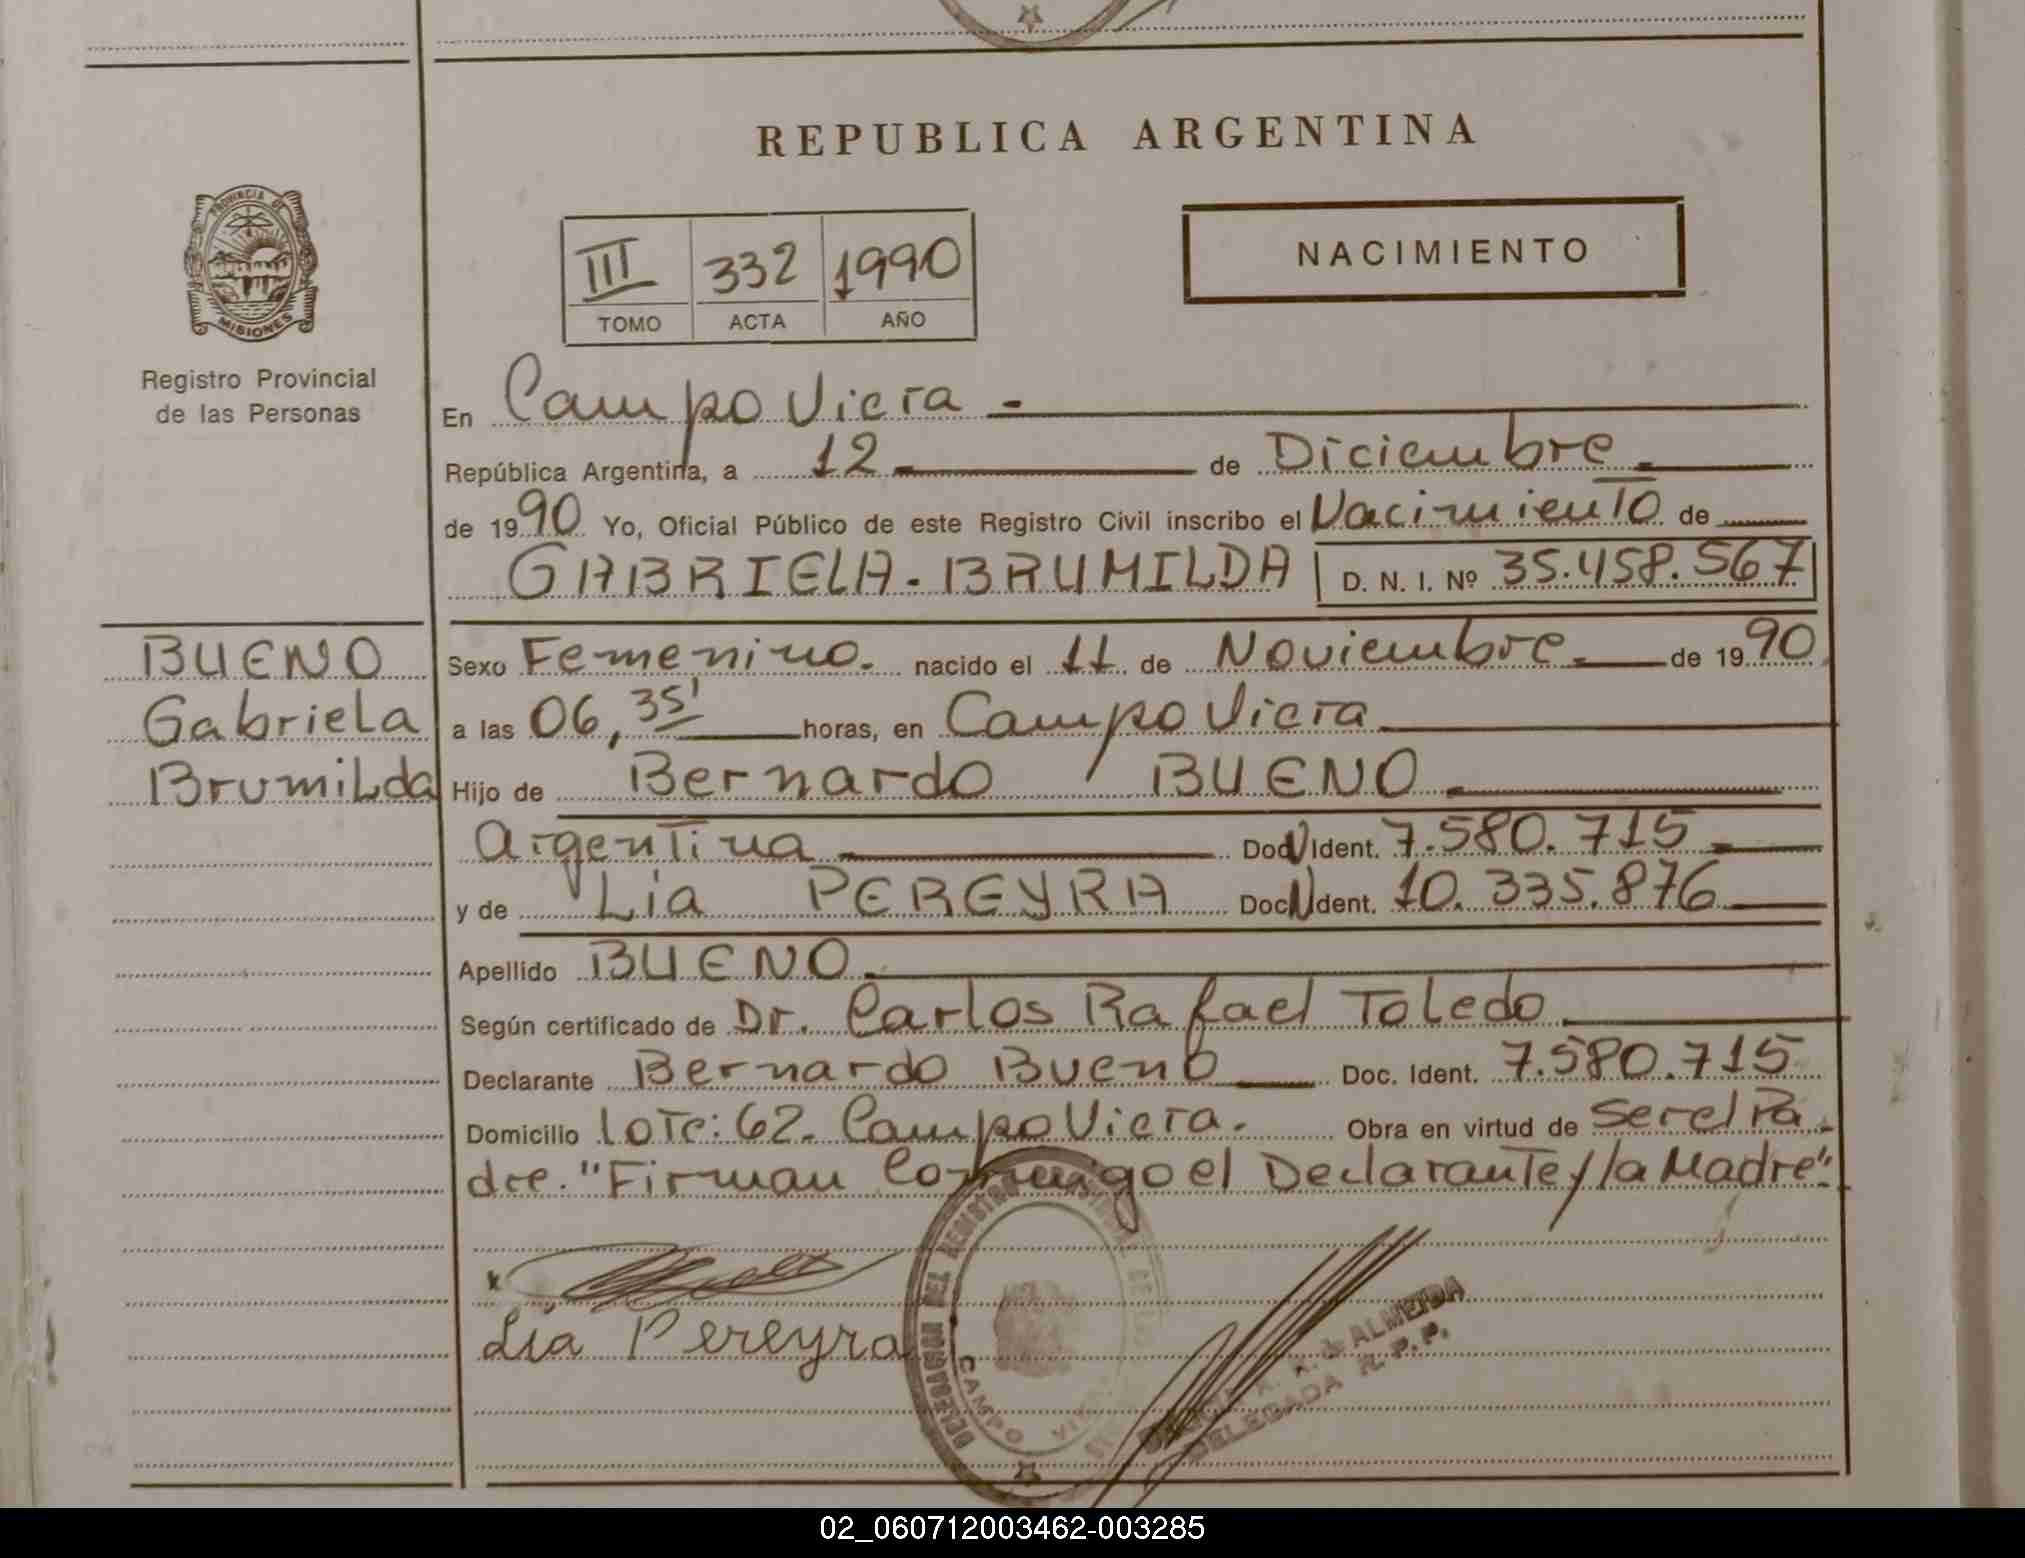 REPUBLICA ARGENTINA
PROVINCIA DE
MISIONES
Registro Provincial
de las Personas
III 332 1990
TOMO ACTA AÑO
NACIMIENTO
En Campo Viera -
República Argentina, a 12 de Diciembre
de 1990 Yo, Oficial Público de este Registro Civil inscribo el Nacimiento de
GABRIELA - BRUMILDA D. N. I. Nº 35.458.567
BUENO
Gabriela
Brumilda
Sexo Femenino. nacido el 11 de Noviembre de 1990
a las 06,35' horas, en Campo Viera
Hijo de Bernardo BUENO
Argentina Doc N Ident. 7.580.715
y de Lia PEREYRA Doc N Ident. 10.335.876
Apellido BUENO
Según certificado de Dr. Carlos Rafael Toledo
Declarante Bernardo Bueno Doc. Ident. 7.580.715
Domicilio Lote: 62. Campo Viera. Obra en virtud de Ser el Pa
dre. "Firman Conmigo el Declarante y la Madre".
Lia Pereyra
DELEGACION DEL REGISTRO
CAMPO
ALMEIDA
DELEGADA R. P. P.
02_060712003462-003285